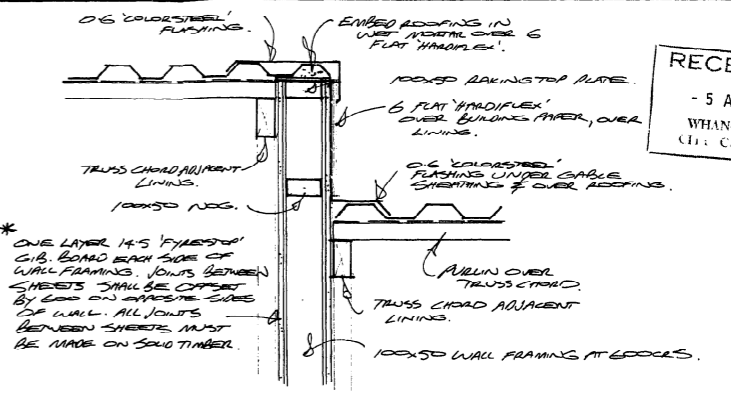 0.6 'COLORSTEEL'
FLASHING.
EMBED ROOFING IN
WET MORTAR OVER 6
FLAT 'HARDIFLEX'.
RECE
- 5 A
WHAN
CITY C
100x50 RAKING TOP PLATE.
6 FLAT 'HARDIFLEX'
OVER BUILDING PAPER, OVER
LINING.
TRUSS CHORD ADJACENT
LINING.
100x50 NOG.
0.6 'COLORSTEEL'
FLASHING UNDER GABLE
SHEATHING & OVER ROOFING.
* ONE LAYER 14.5 'FYRESTOP'
GIB. BOARD EACH SIDE OF
WALL FRAMING. JOINTS BETWEEN
SHEETS SHALL BE OFFSET
BY 600 ON OPPOSITE SIDES
OF WALL. ALL JOINTS
BETWEEN SHEETS MUST
BE MADE ON SOLID TIMBER.
PURLIN OVER
TRUSS CHORD.
TRUSS CHORD ADJACENT
LINING.
100x50 WALL FRAMING AT 600CRS.